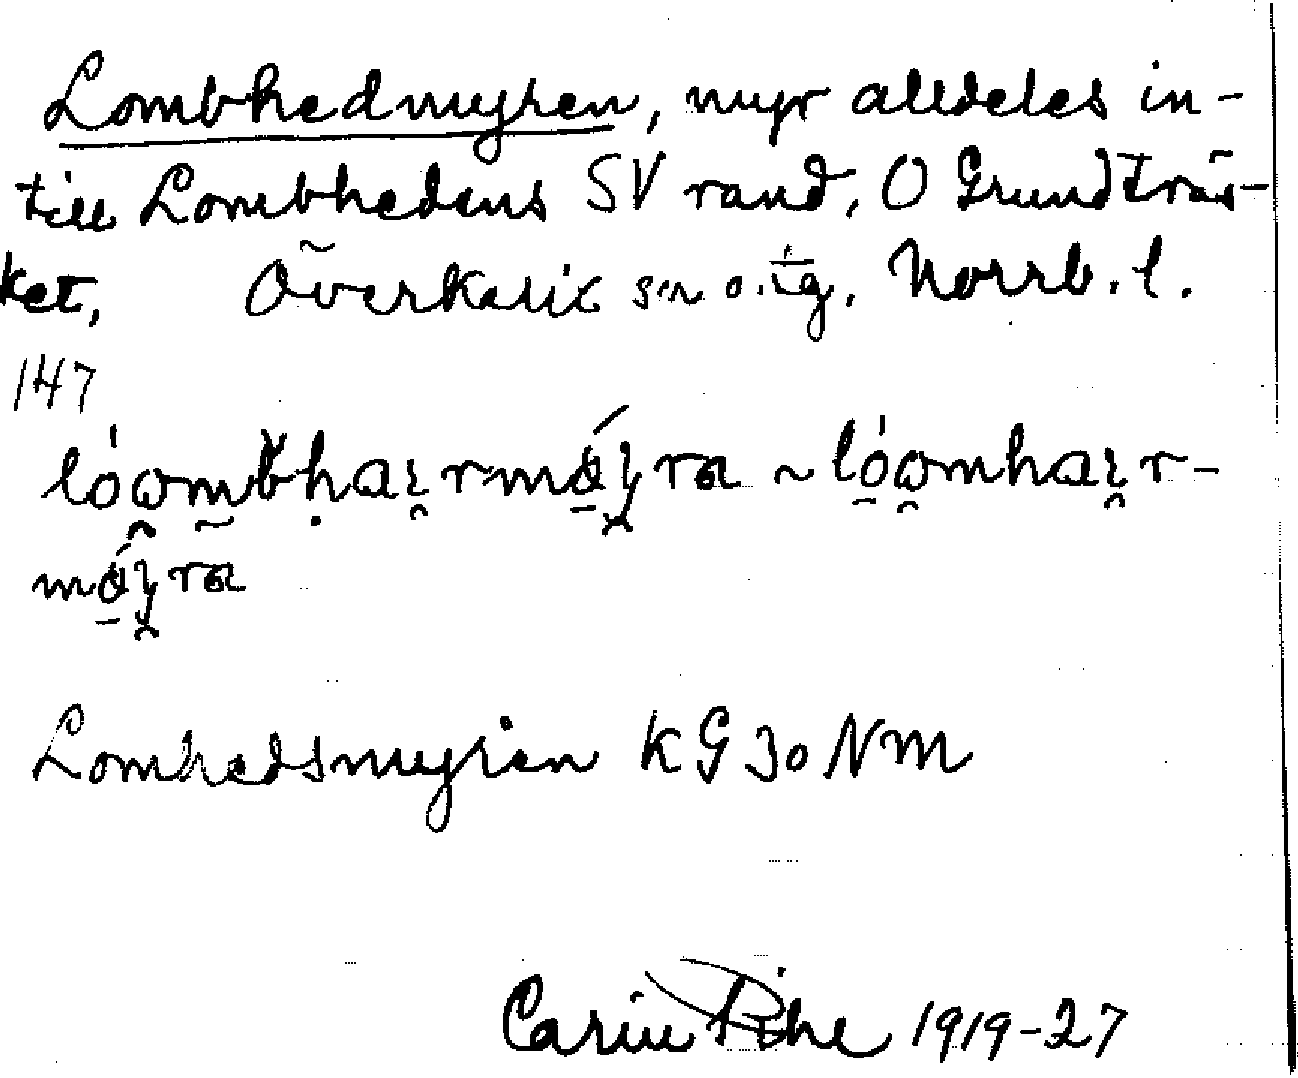 Lombhedmyren, myr alldeles in-
till Lombhedens SV rand, O Grundträs-
ket, Överkalix sn o. tg, Norrb. l.
147
Lomhedsmyren KG 30 NM
Carin Pihl 1919-27